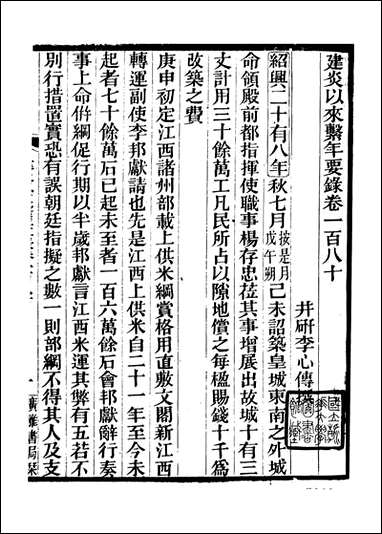 建炎以來繫年要錄卷一百八十
井硏李心傳撰
紹興二十有八年秋七月按是月戊午朔己未詔築皇城東南之外城
命領殿前都指揮使職事楊存忠莅其事增展出故城十有三
丈計用三十餘萬工凡民所占以隙地償之每楹賜錢十千爲
改築之費
庚申初定江西諸州部載上供米綱賞格用直敷文閣新江西
轉運副使李邦獻請也先是江西上供米自二十一年至今未
起者七十餘萬石已起未至者一百六萬餘石會邦獻辭行奏
事上命倂綱促行期以半歲邦獻言江西米運其弊有五若不
別行措置實恐有誤朝廷指擬之數一則部綱不得其人及支
一
廣雅書局栞